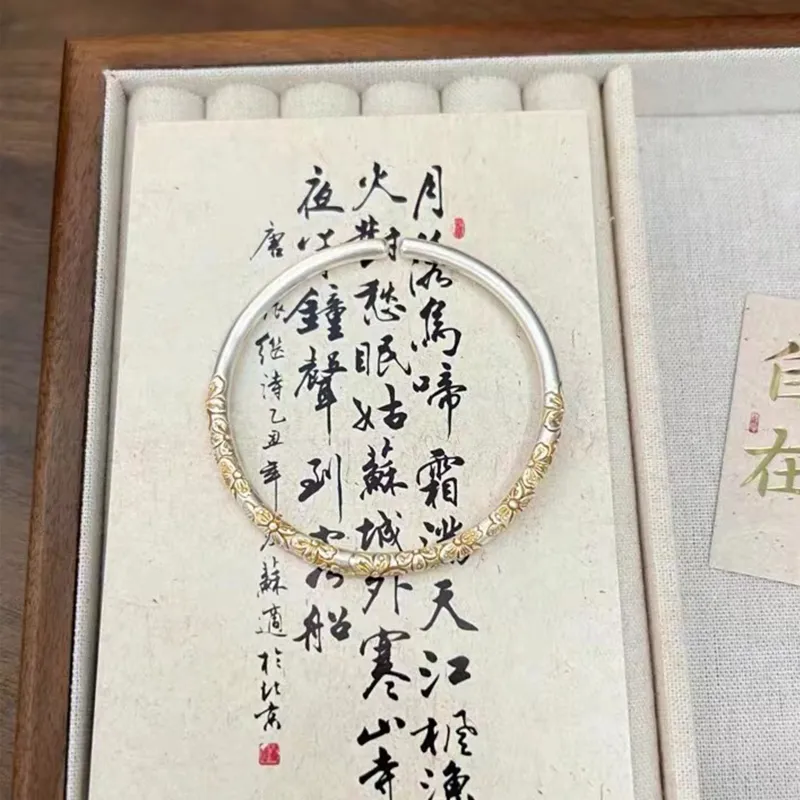 月落烏啼霜滿天江楓漁
火對愁眠姑蘇城外寒山寺
夜半鐘聲到客船
唐張継詩乙丑年蘇適於北京
自在